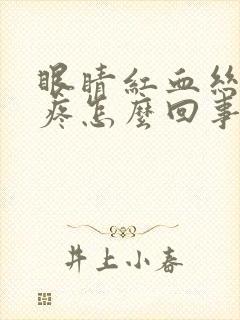 眼睛紅血絲
疼怎麼回事
井上小春